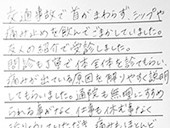 交通事故で首がまわらず、シップや
痛み止めを飲んでごまかしていました。
友人の紹介で受診しました。
問診も丁寧で体全体を診ていただき
痛みが出ている原因を解りやすく説明
してもらいました。通院も無理にすすめ
られる事がなく仕事も休む事なく